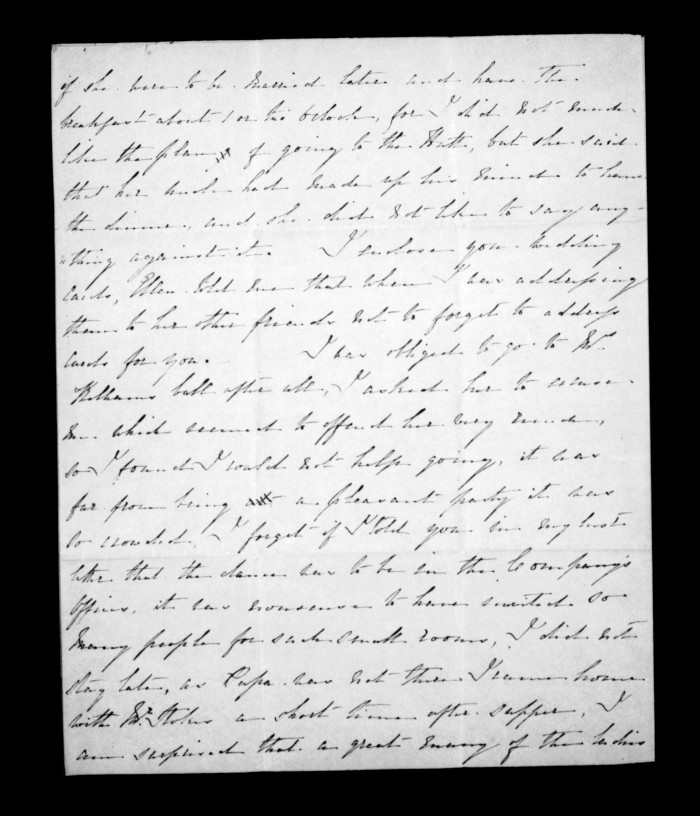 if she were to be married later and have the
breakfast about 1 or two o'clock, for I did not much
like the plan of going to the Hutt, but she said
that her uncle had made up his mind to have
the dinner, and she did not like to say any-
=thing against it. I enclose you wedding
cards, Ellen told me that when I was addressing
them to her other friends not to forget to address
cards for you. I was obliged to go to Mrs
Kelhams ball after all, I asked her to excuse
me which seemed to offend her very much,
so I found I could not help going, it was
far from being a pleasant party it was
so crowded, I forget if I told you in my last
letter that the dance was to be in the Company's
Offices, it was nonsense to have invited so
many people for such small rooms, I did not
stay late, as Papa was not there I came home
with Mr Stokes a short time after supper, I
am surprised that a great many of the ladies